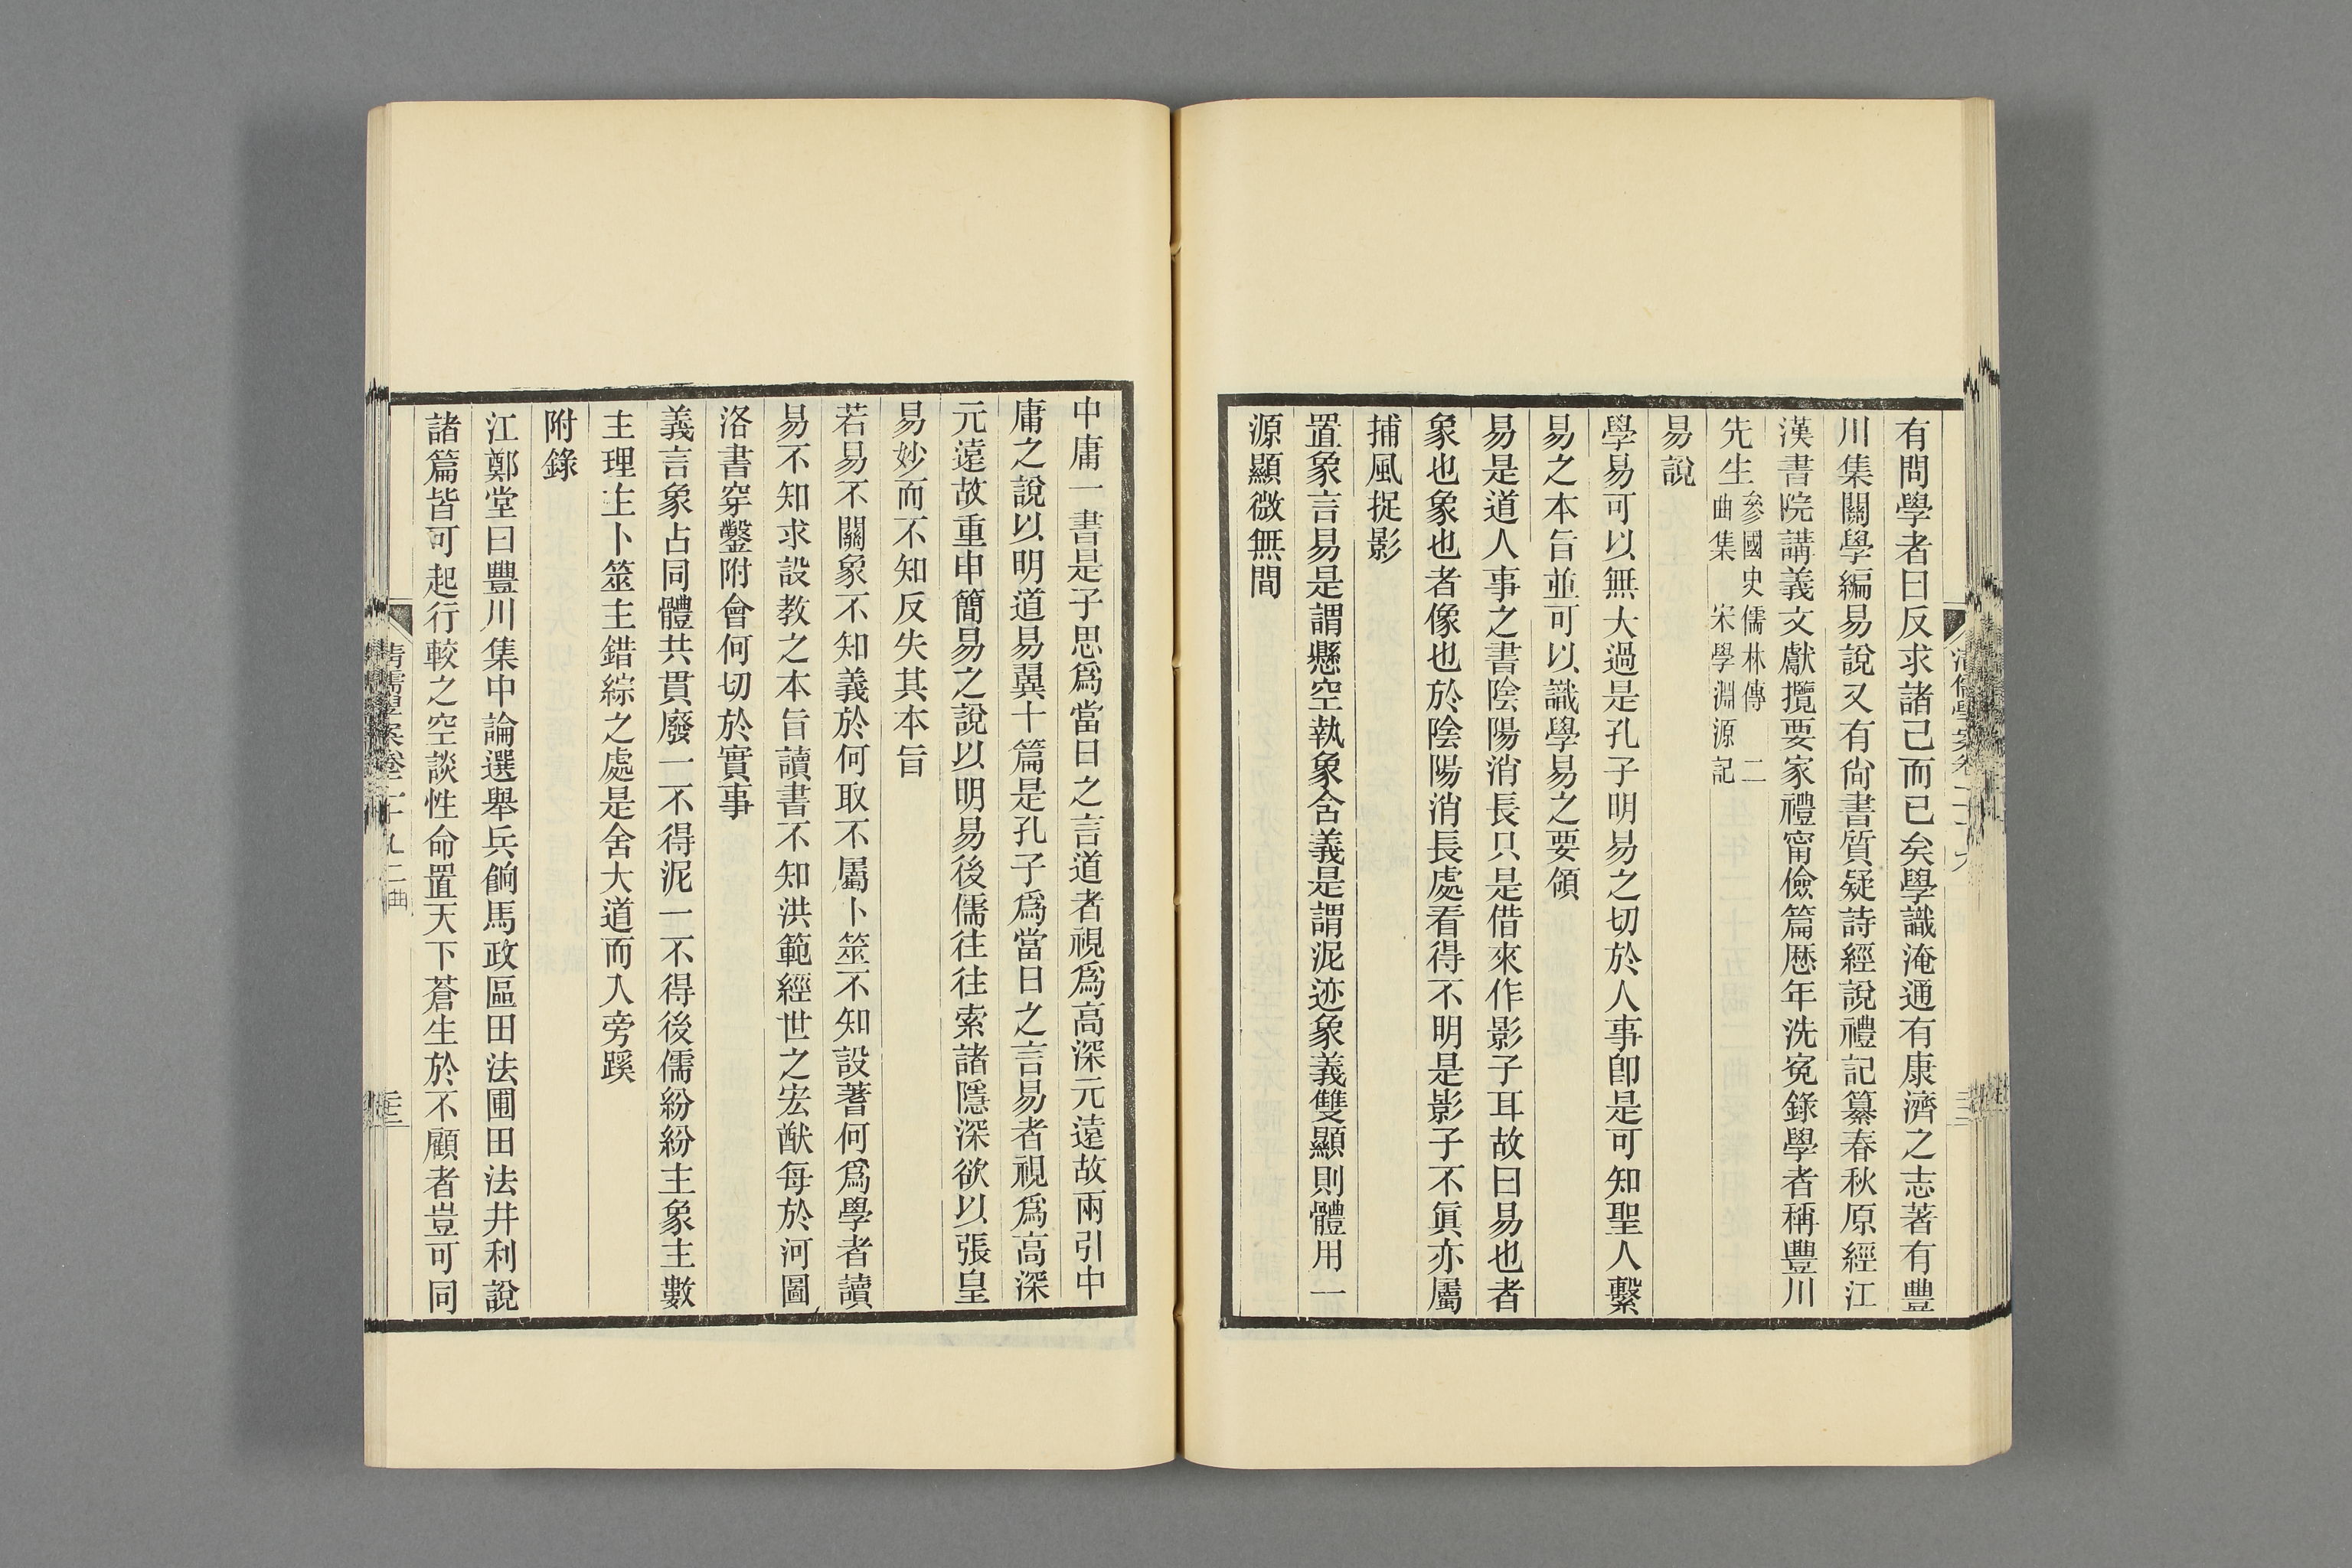 有問學者曰反求諸己而已矣學識淹通有康濟之志著有豐
川集關學編易說又有尙書質疑詩經說禮記纂春秋原經江
漢書院講義文獻攬要家禮甯儉篇歷年洗寃錄學者稱豐川
先生參國史儒林傳二曲集宋學淵源記
易說
學易可以無大過是孔子明易之切於人事卽是可知聖人繫
易之本旨並可以識學易之要領
易是道人事之書陰陽消長只是借來作影子耳故曰易也者
象也象也者像也於陰陽消長處看得不明是影子不眞亦屬
捕風捉影
置象言易是謂懸空執象舍義是謂泥迹象義雙顯則體用一
源顯微無間
中庸一書是子思爲當日之言道者視爲高深元遠故兩引中
庸之說以明道易翼十篇是孔子爲當日之言易者視爲高深
元遠故重申簡易之說以明易後儒往往索諸隱深欲以張皇
易妙而不知反失其本旨
若易不關象不知義於何取不屬卜筮不知設蓍何爲學者讀
易不知求設教之本旨讀書不知洪範經世之宏猷每於河圖
洛書穿鑿附會何切於實事
義言象占同體共貫廢一不得泥一不得後儒紛紛主象主數
主理主卜筮主錯綜之處是舍大道而入旁蹊
附錄
江鄭堂曰豐川集中論選舉兵餉馬政區田法圃田法井利說
諸篇皆可起行較之空談性命置天下蒼生於不顧者豈可同
清儒學案卷二十九二曲